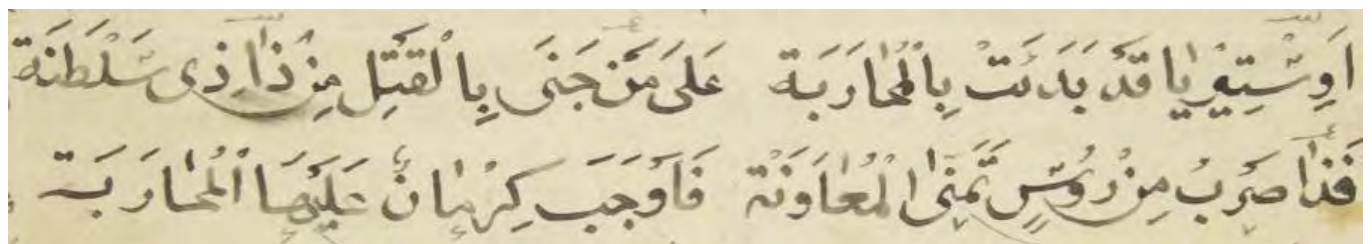 اَوِسْتِرِيَا قَدْ بَدَئَتْ بِالْمُحَارَبَة عَلَى مَنْ جَنَى بِالْقَتْلِ مِنْ ذَا ذِى سَلْطَنَة
فَذَا صَرْبُ مِنْ رُوسٍ تَمَنَى الْمُعَاوَنَة فَاَوْجَبَ كِرْمَانٌ عَلَيْهَا الْمُحَارَبَة